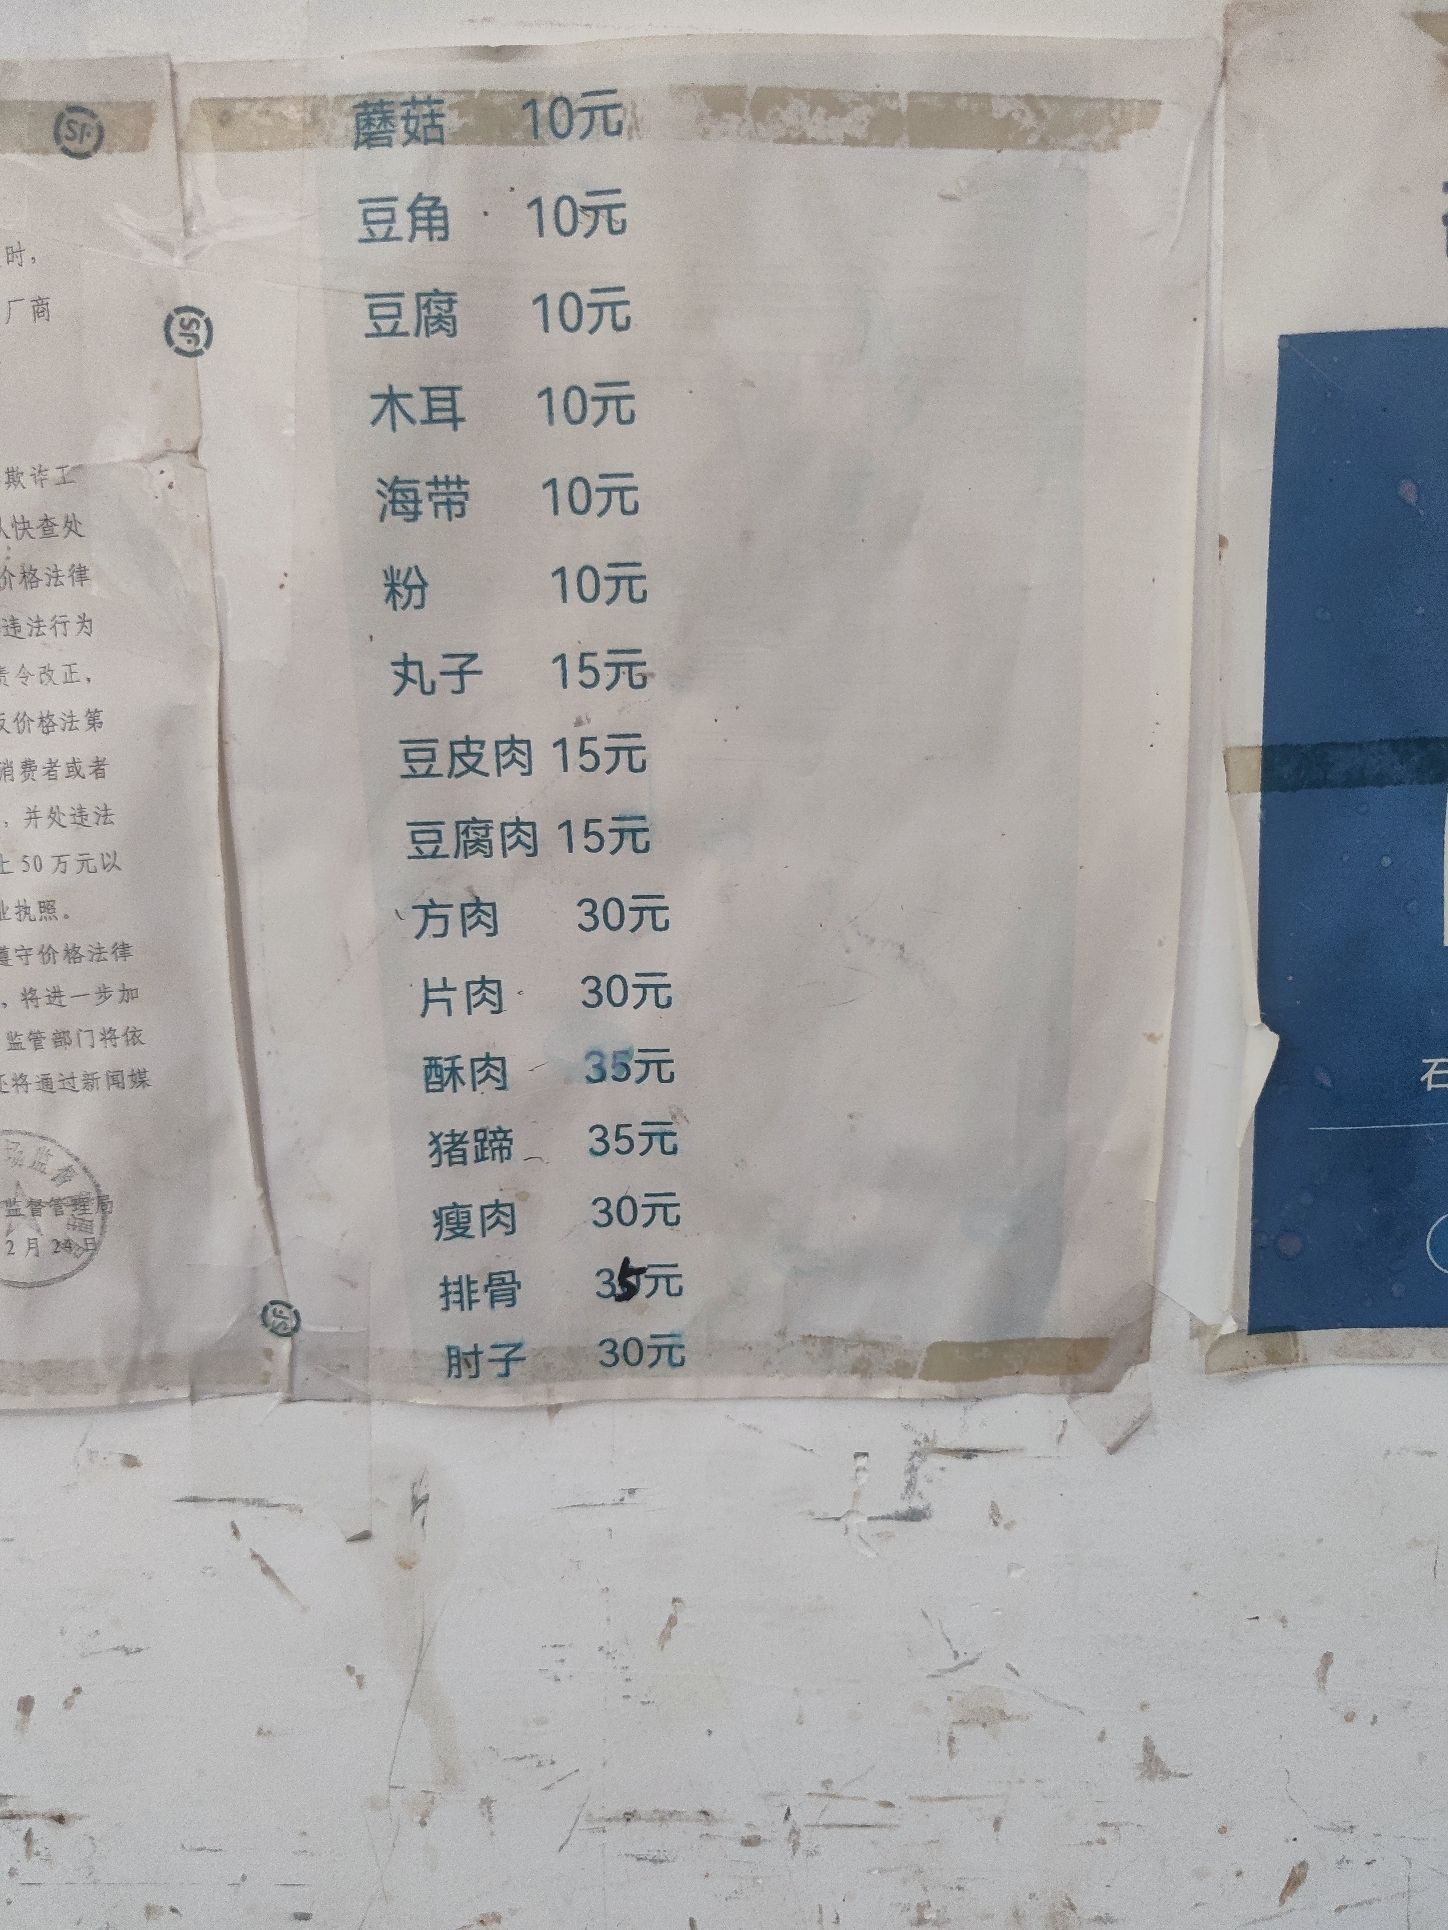 SF
时，
厂商
欺诈工
从快查处
价格法律
违法行为
责令改正，
反价格法第
消费者或者
，并处违法
上50万元以
业执照。
遵守价格法律
，将进一步加
监管部门将依
还将通过新闻媒
监督管理局
2月24日
SF
SF
蘑菇 10元
豆角 10元
豆腐 10元
木耳 10元
海带 10元
粉 10元
丸子 15元
豆皮肉 15元
豆腐肉 15元
方肉 30元
片肉 30元
酥肉 35元
猪蹄 35元
瘦肉 30元
排骨 35元
肘子 30元
石